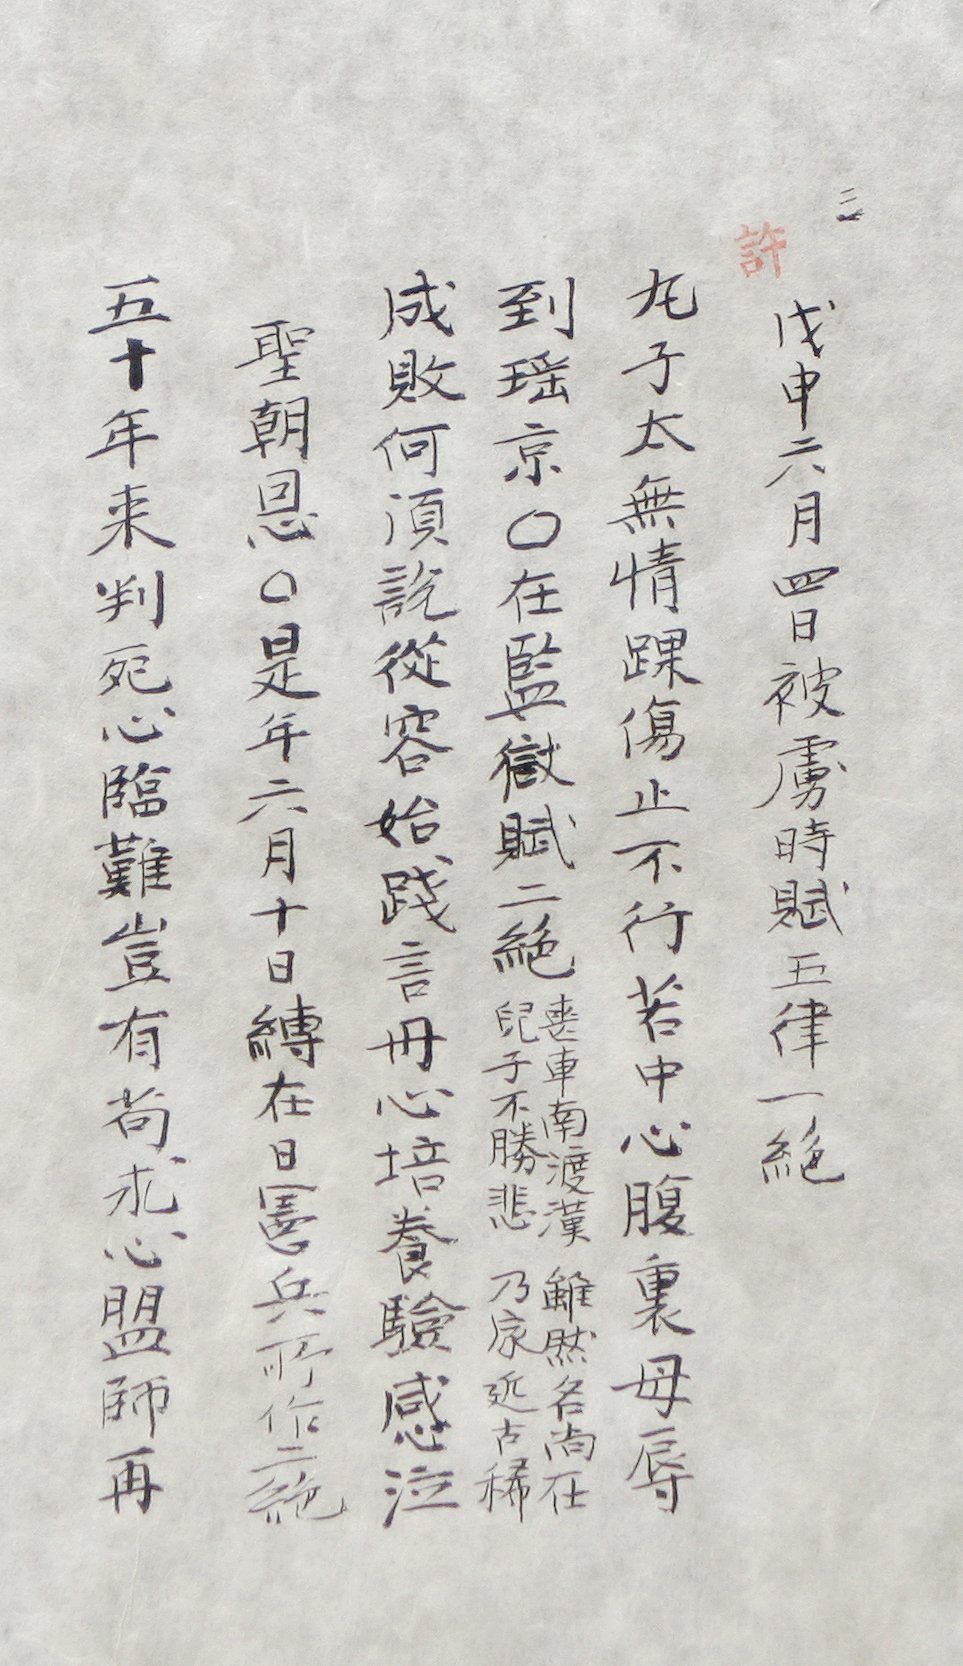 三
許
戊申六月四日被虜時賦五律一絶
丸子太無情踝傷止不行若中心腹裏毋辱
到瑶京〇在監獄賦二絶
喪車南渡漢 雖然名尚在
兒子不勝悲 乃家近古稀
成敗何湏説從容始踐言丹心培養驗感泣
聖朝恩〇是年六月十日縛在日憲兵所作二絶
五十年来判死心臨難豈有苟求心盟師再